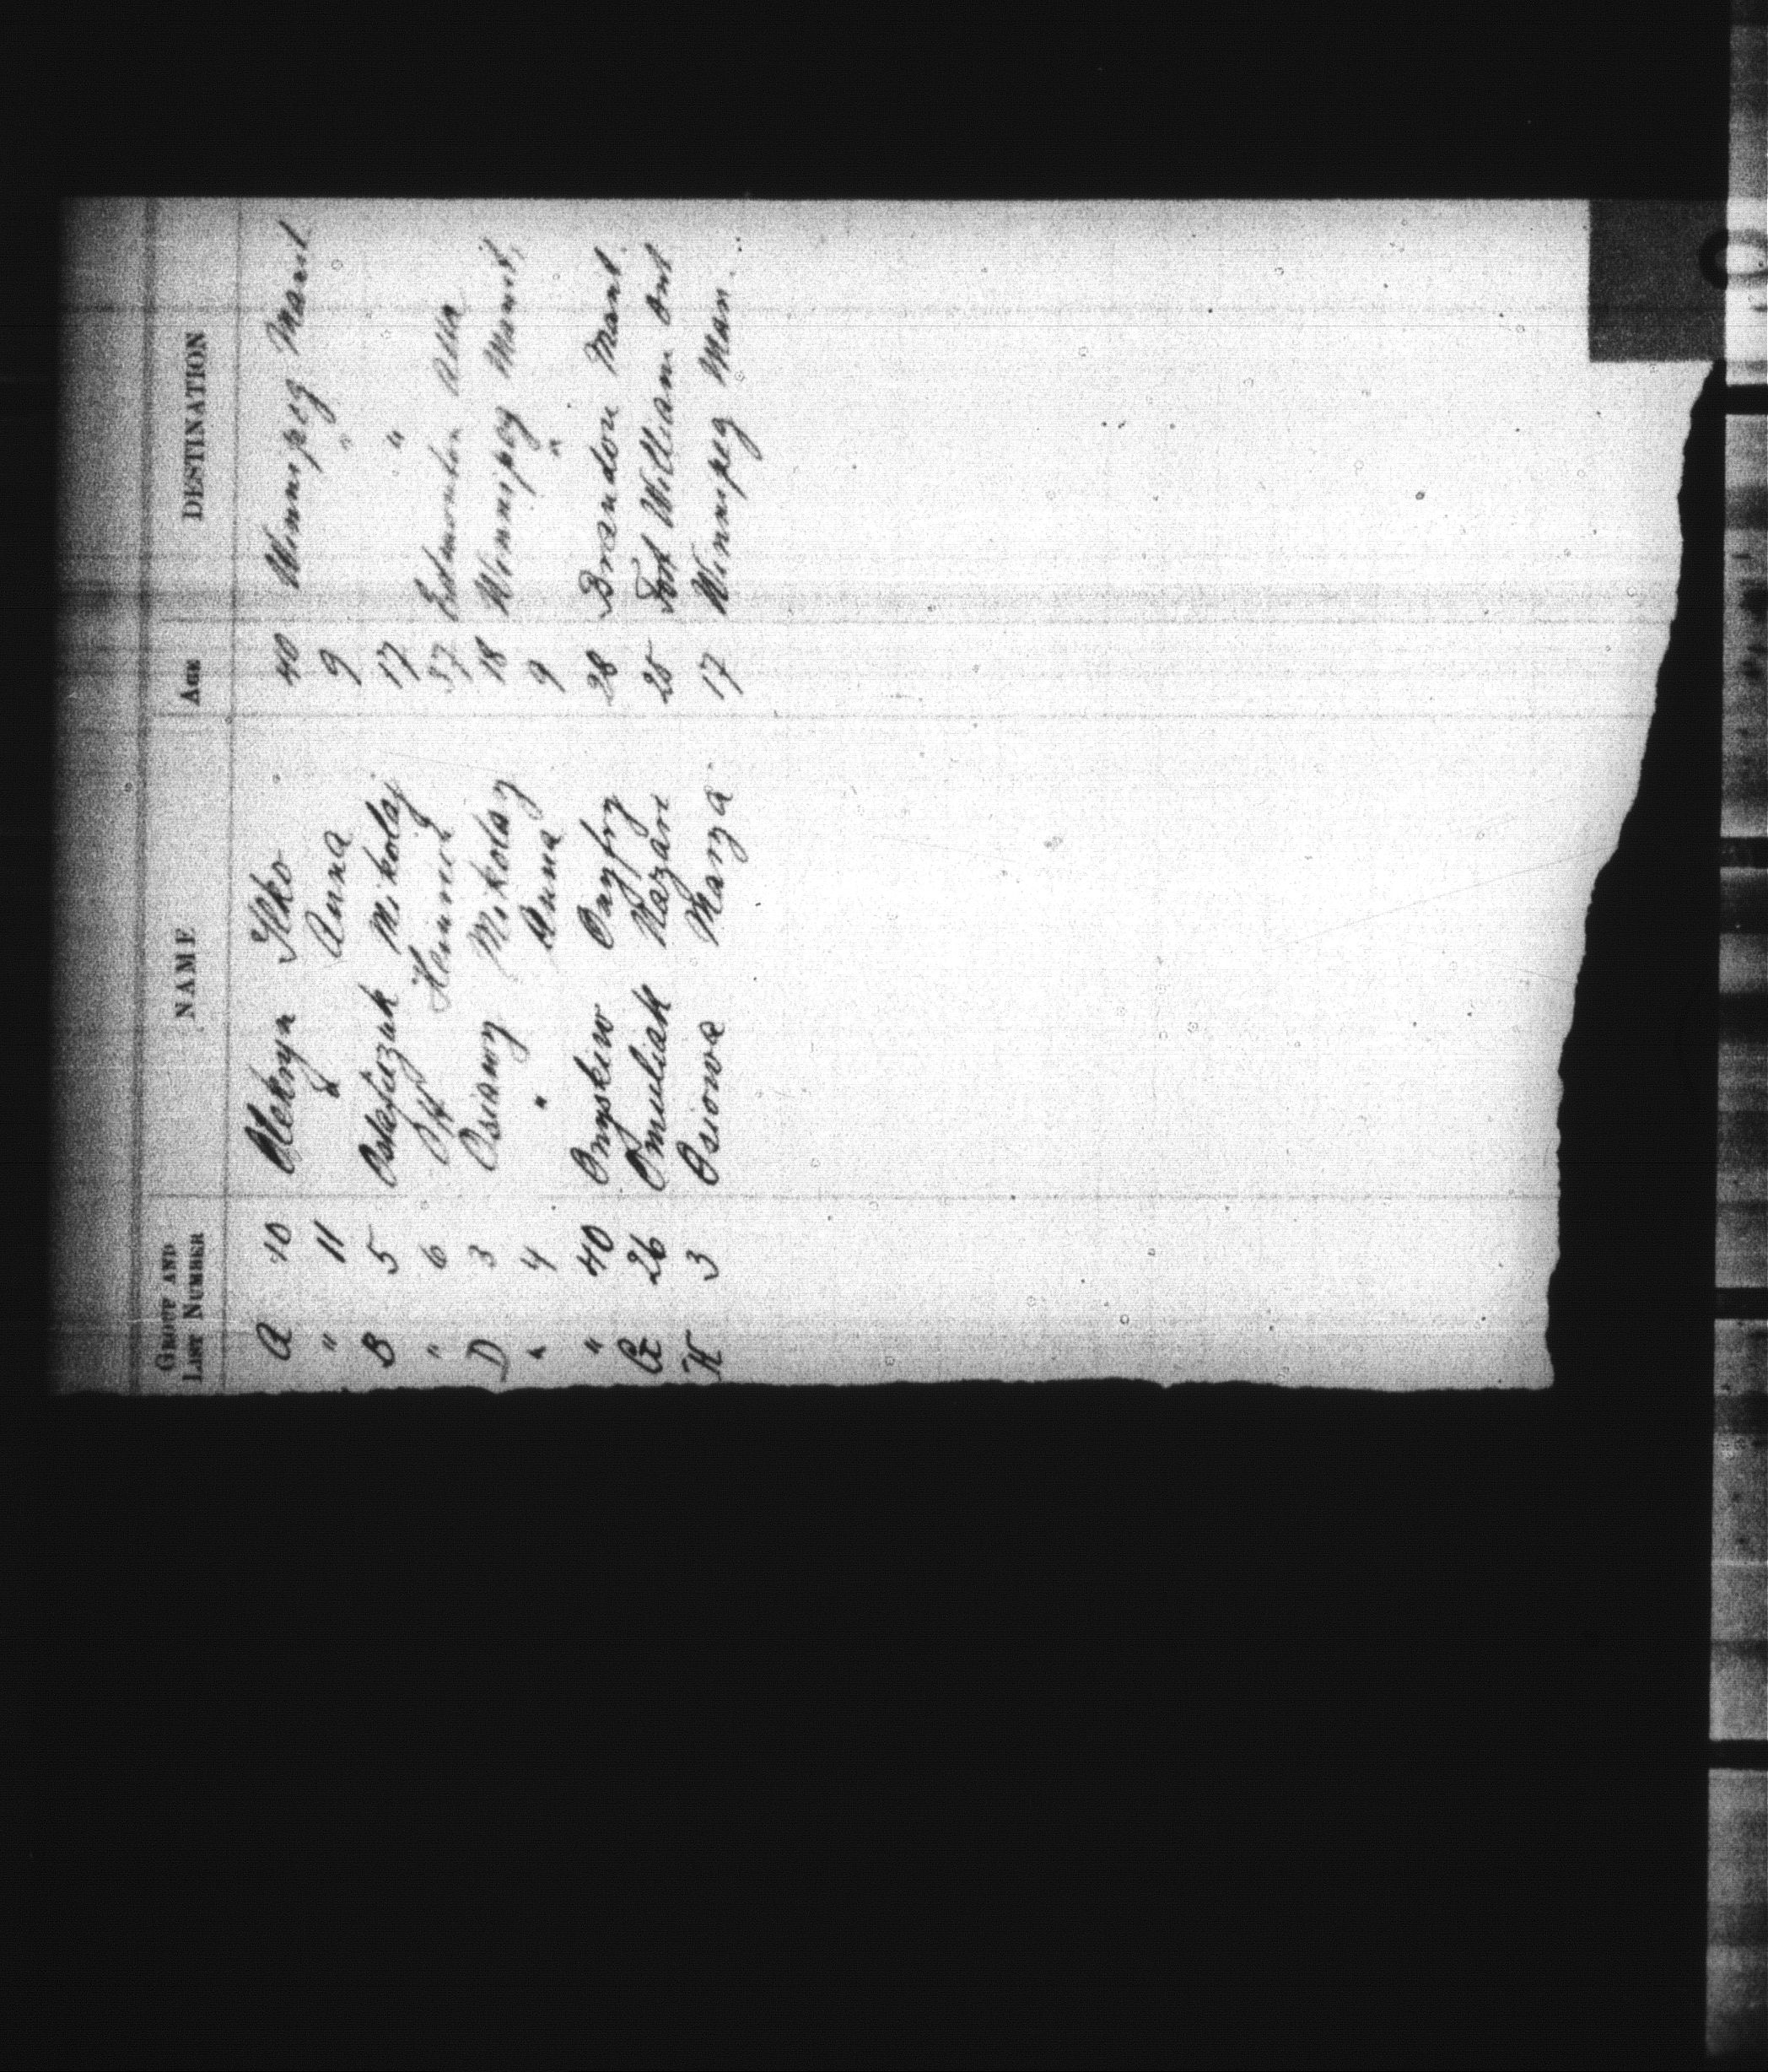 GROUP AND LIST NUMBER NAME AGE DESTINATION
A 10 Oleksyn Ilko 40 Winnipeg Manit
" 11 " Anna 9 "
B 5 Ostaficzuk Mikolaj 17 "
" 6 Ott Heinrich 37 Edmonton Alta
D 3 Osiawy Mikolay 18 Winnipeg Manit.
" 4 " Anna 9 "
" 40 Onyskiw Onyfry 28 Brandon Manit.
G 26 Omeliak Nazari 25 Fort William Ont
K 3 Osiowa Marya 17 Winnipeg Man.